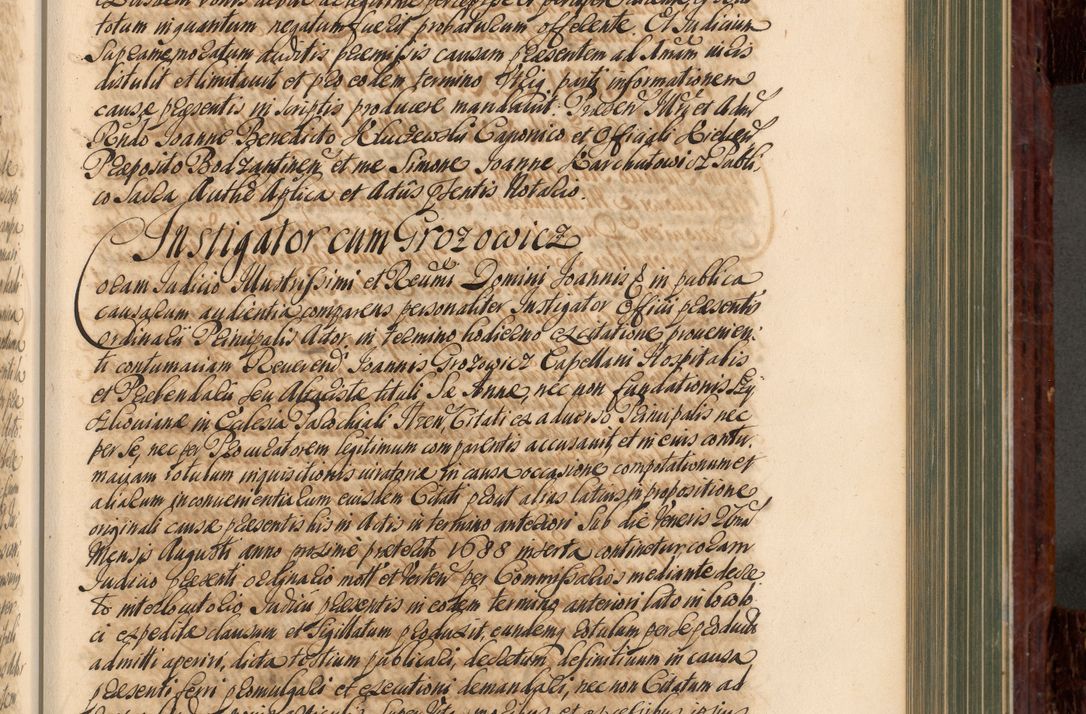 totum in quantum negatum fuerit probaturum offerente. Et Judicium
Supra memoratum auditis praemissis causam praesentem ad
distulit et limitavit et pro eodem termino parti informationem
causae praesentis in scriptis producere mandavit. Praesen et Adm
Rndo Joanne Benedicto Kluczewski Canonico et Officiali Kielcen
Praeposito Bodzantinen et me Simone Joanne Karchutowicz Publi,
co Sacra Authe Aplica et Actus pntis Notario.
Instigator cum Grozowicz
Coram Judicio Illustrissimi et Reūmi Domini Joannis & in publica
causarum audientia comparens personaliter Instigator Officii praesentis
ordinarii Principalis Actor, in termino hodierno ex citatione provenien,
ti contumaciam Reverendi Joannis Grozowicz Capellani Hospitalis
et Praebendarii seu Altaristae tituli Sae Annae, nec non fundationis
in Ecclesia Parochiali Citati ex adverso Principalis nec
per se, nec per Procuratorem legitimum comparentis accusavit, et in eius contu,
maciam rotulum inquisitionis iuratoriae in causa occasione computationum et
aliarum inconvenientiarum eiusdem Citati prout alias latius in propositione
originali causae praesentis his in Actis in termino anteriori Sub die Veneris
Mensis Augusti anno proxime praeterito 1688 inserta continetur, coram
Judicio praesenti ordinario mott et Verten per Commissarios mediante decre
to interlocutorio Judicii praesentis in eodem termino anteriori lato in loco lo
ci expedita clausum et Sigillatum produxit, eundemq rotulum per se productū
admitti aperiri, dicta testium publicari, decretum definitivum in causa
praesenti ferri promulgari et executioni demandari, nec non Citatum ad